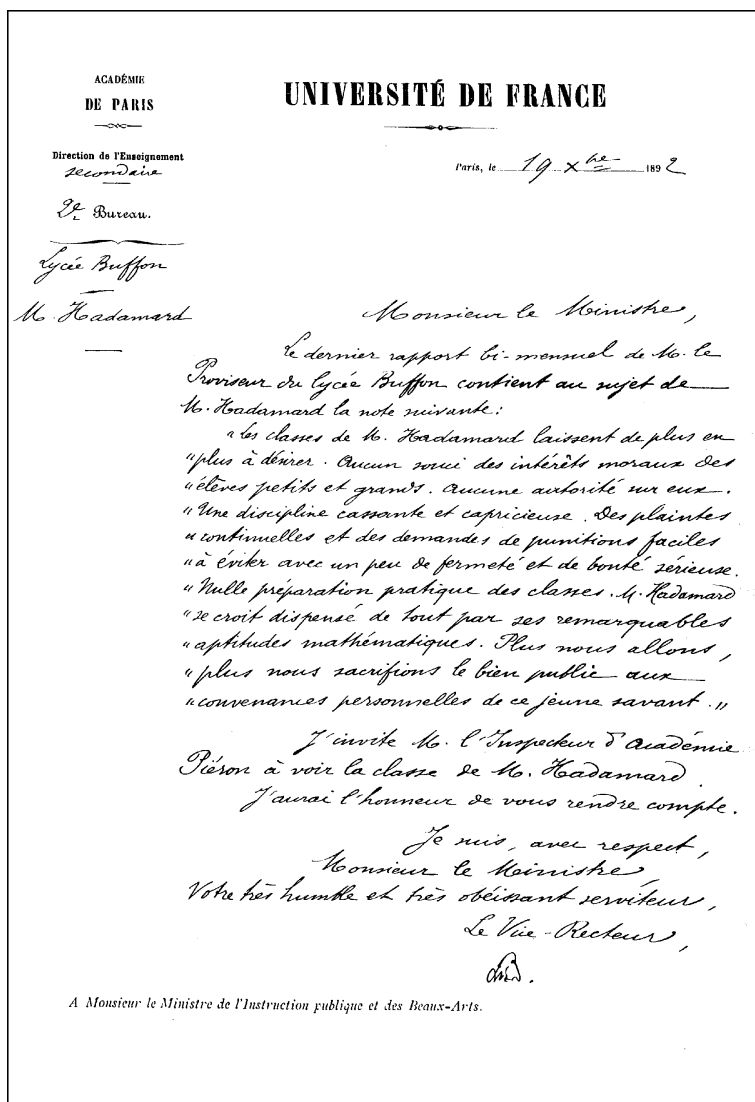 ACADÉMIE
DE PARIS
UNIVERSITÉ DE FRANCE
Direction de l'Enseignement
secondaire
2e Bureau.
Lycée Buffon
M. Hadamard
Paris, le 19 Xbre 1892
Monsieur le Ministre,
Le dernier rapport bi-mensuel de M. le
Proviseur du lycée Buffon contient au sujet de
M. Hadamard la note suivante :
"Les classes de M. Hadamard laissent de plus en
"plus à désirer. Aucun souci des intérêts moraux des
"élèves petits et grands. Aucune autorité sur eux.
"Une discipline cassante et capricieuse. Des plaintes
"continuelles et des demandes de punitions faciles
"à éviter avec un peu de fermeté et de bonté sérieuse.
"Nulle préparation pratique des classes. M. Hadamard
"se croit dispensé de tout par ses remarquables
"aptitudes mathématiques. Plus nous allons,
"plus nous sacrifions le bien public aux
"convenances personnelles de ce jeune savant."
J'invite M. l'Inspecteur d'Académie
Piéron à voir la classe de M. Hadamard.
J'aurai l'honneur de vous rendre compte.
Je suis, avec respect,
Monsieur le Ministre,
Votre très humble et très obéissant serviteur,
Le Vice-Recteur,
A Monsieur le Ministre de l'Instruction publique et des Beaux-Arts.